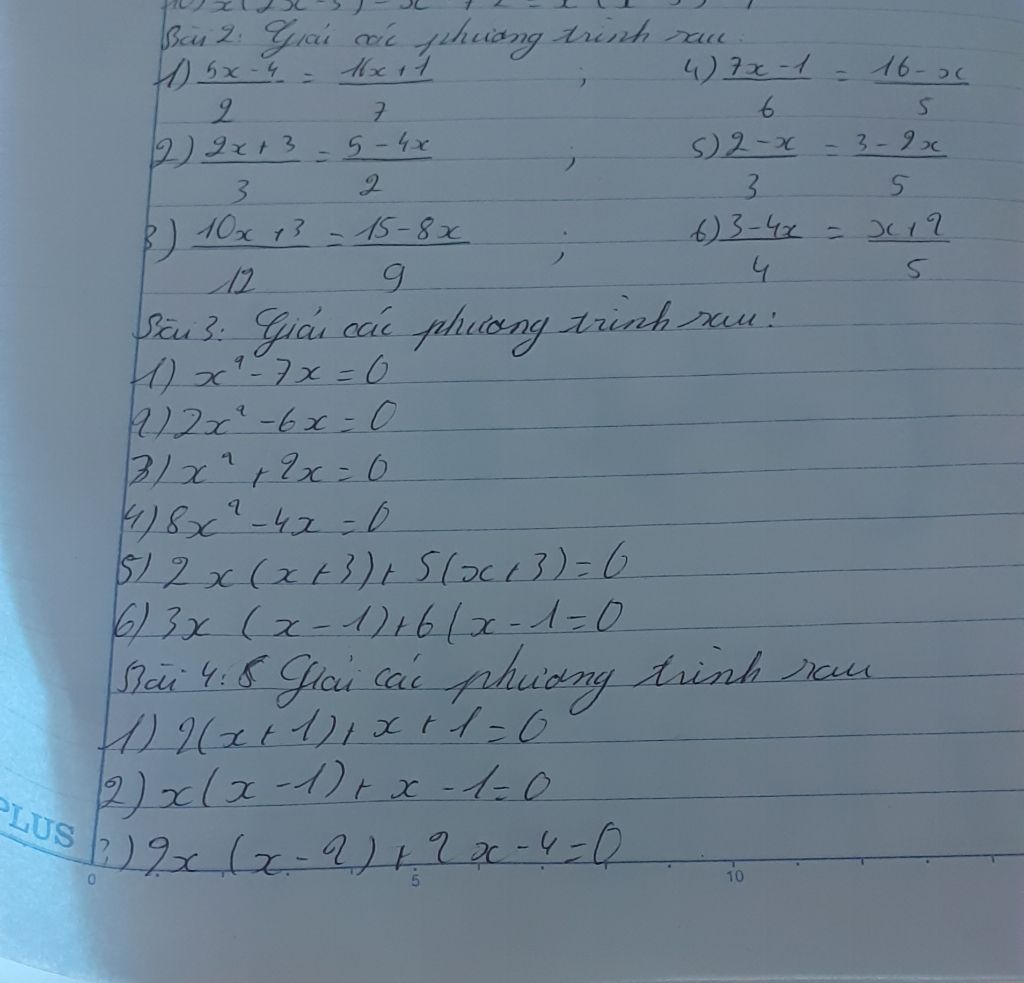 10) x(2x-3)
Bài 2: Giải các phương trình sau:
1) (5x-4)/2 = (16x+1)/7 ; 4) (7x-1)/6 = (16-x)/5
2) (2x+3)/3 = (5-4x)/2 ; 5) (2-x)/3 = (3-2x)/5
3) (10x+3)/12 = (15-8x)/9 ; 6) (3-4x)/4 = (x+2)/5
Bài 3: Giải các phương trình sau:
1) x² - 7x = 0
2) 2x² - 6x = 0
3) x² + 2x = 0
4) 8x² - 4x = 0
5) 2x(x+3)+5(x+3)=0
6) 3x (x-1)+6(x-1=0
Bài 4: Giải các phương trình sau
1) 2(x+1)+x+1=0
2) x(x-1)+x-1=0
3) 2x (x-2)+2x-4=0
PLUS
0 5 10